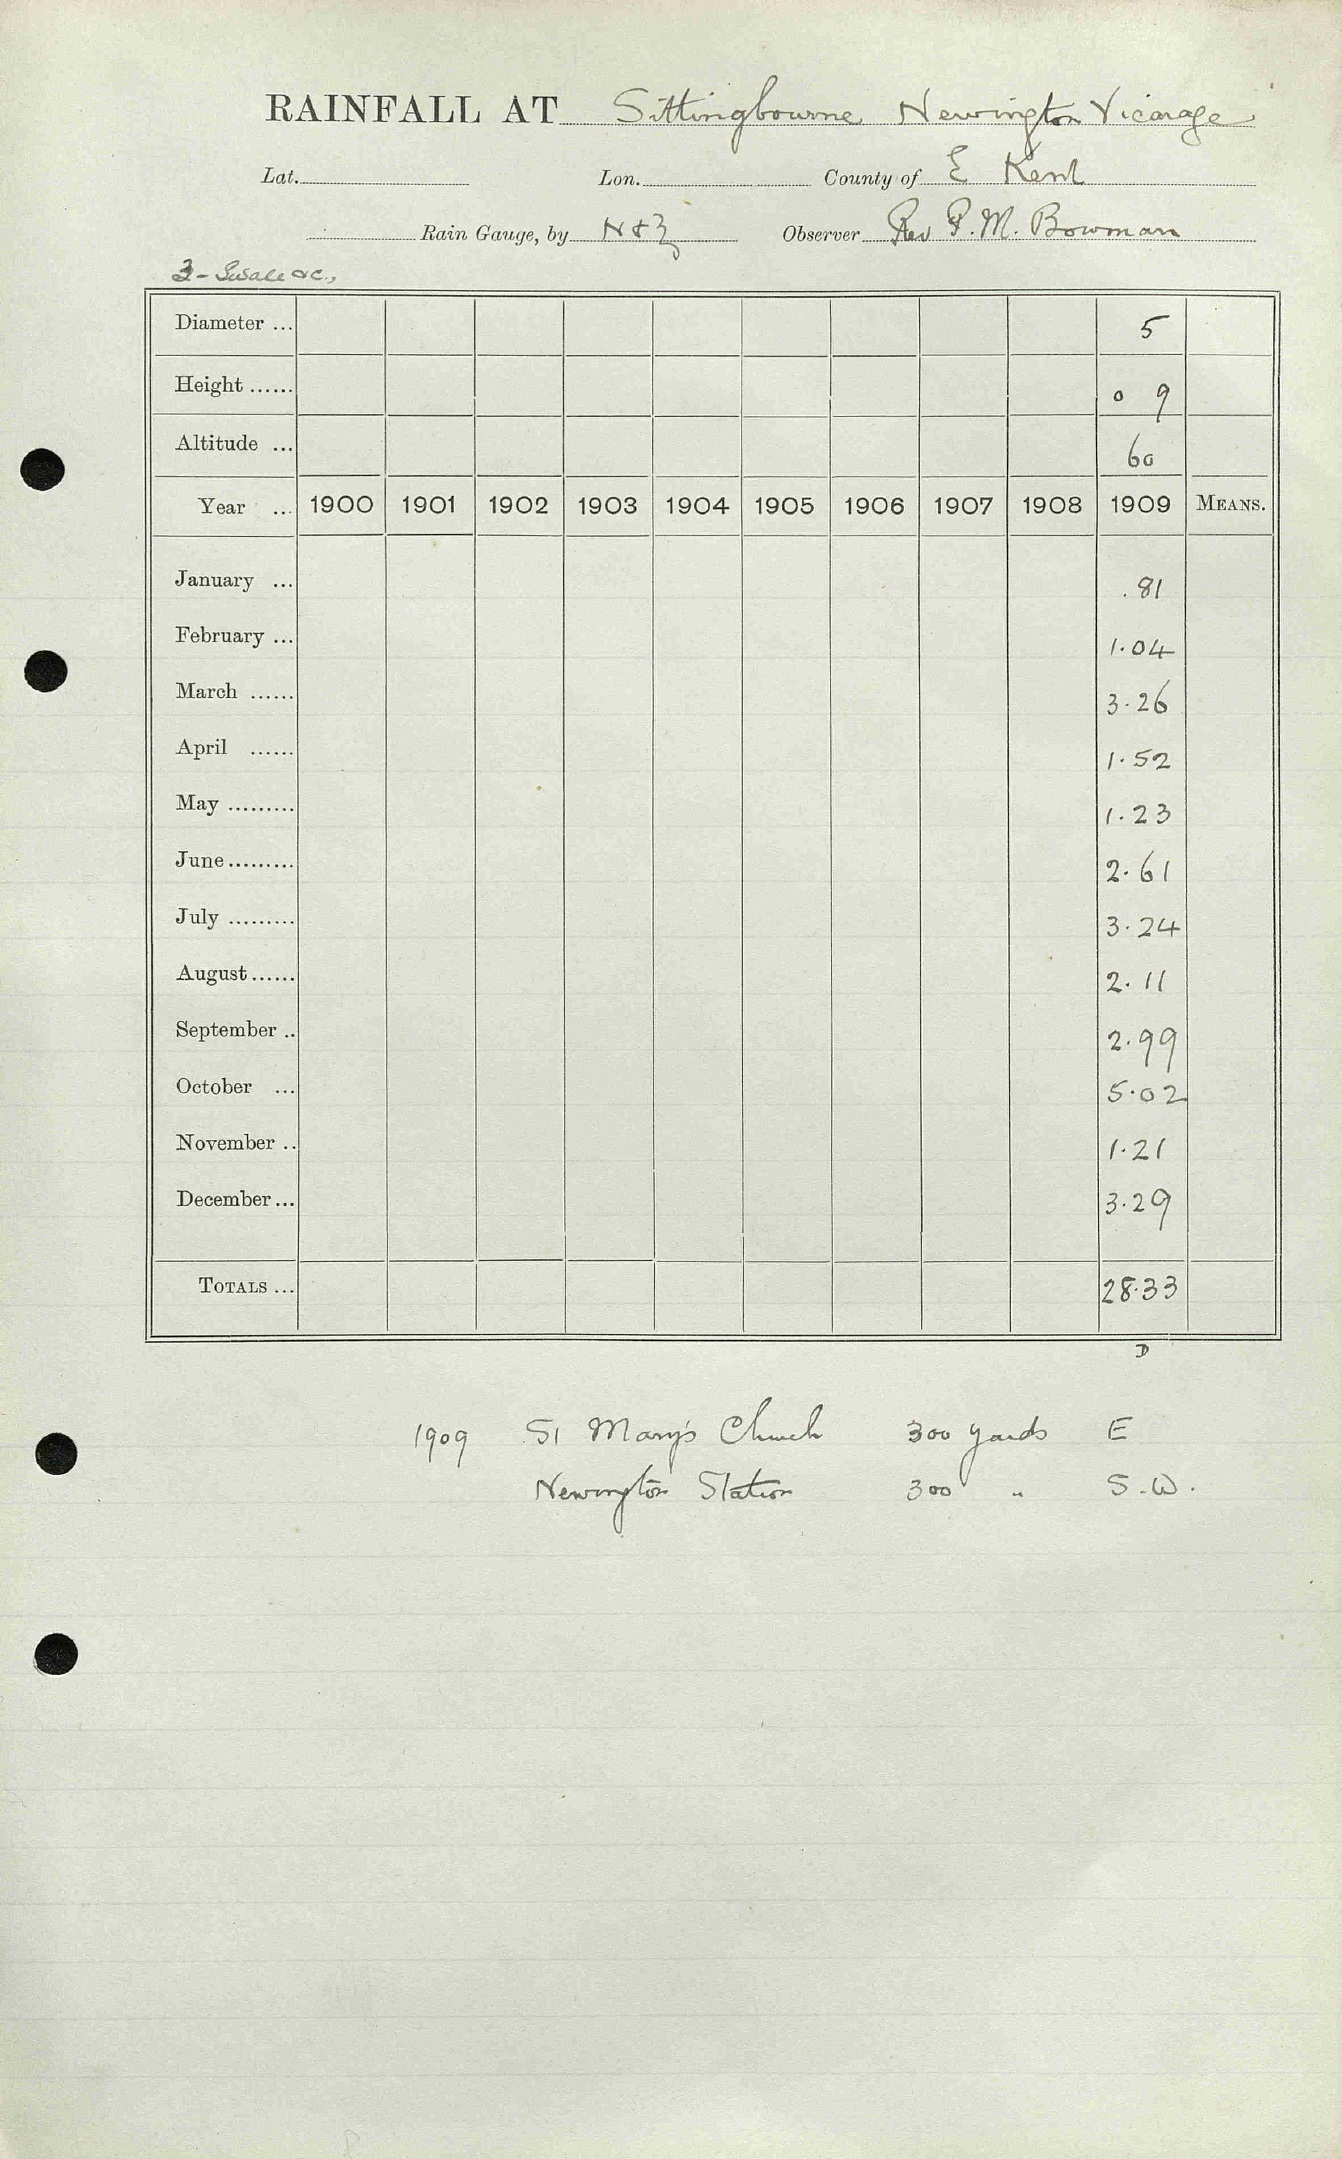 RAINFALL AT Sittingbourne Newington Vicarage
Lat. Lon. County of E Kent
Rain Gauge, by N & Z Observer Rev P. M. Bowman
3 - Swale &c.,
Diameter ... 5
Height ...... 0 9
Altitude ... 60
Year ... 1900 1901 1902 1903 1904 1905 1906 1907 1908 1909 MEANS.
January ... .81
February ... 1.04
March ...... 3.26
April ...... 1.52
May ......... 1.23
June ......... 2.61
July ......... 3.24
August ...... 2.11
September .. 2.99
October ... 5.02
November .. 1.21
December ... 3.29
TOTALS ... 28.33
D
1909 St Mary's Church 300 yards E
Newington Station 300 " S.W.